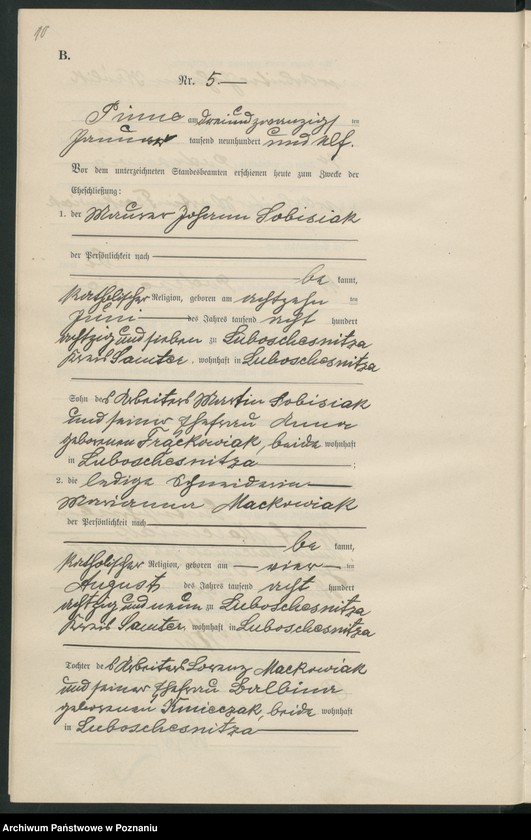 10
B.
Nr. 5
Pinne am dreiundzwanzigs ten
Januar tausend neunhundert und elf.
Vor dem unterzeichneten Standesbeamten erschienen heute zum Zwecke der
Eheschließung:
1. der Maurer Johann Sobisiak
der Persönlichkeit nach
be kannt,
katholischer Religion, geboren am achtzehn ten
Juni des Jahres tausend acht hundert
achtzig und sieben zu Luboschesnitza
Kreis Samter, wohnhaft in Luboschesnitza
Sohn des Arbeiters Martin Sobisiak
und seiner Ehefrau Anna
geborenen Frąckowiak, beide wohnhaft
in Luboschesnitza ;
2. die ledige Schneiderin
Marianna Mackowiak
der Persönlichkeit nach
be kannt,
katholischer Religion, geboren am vier ten
August des Jahres tausend acht hundert
achtzig und neun zu Luboschesnitza
Kreis Samter, wohnhaft in Luboschesnitza
Tochter des Arbeiters Lorenz Mackowiak
und seiner Ehefrau Balbina
geborenen Kmieczak, beide wohnhaft
in Luboschesnitza
Archiwum Państwowe w Poznaniu